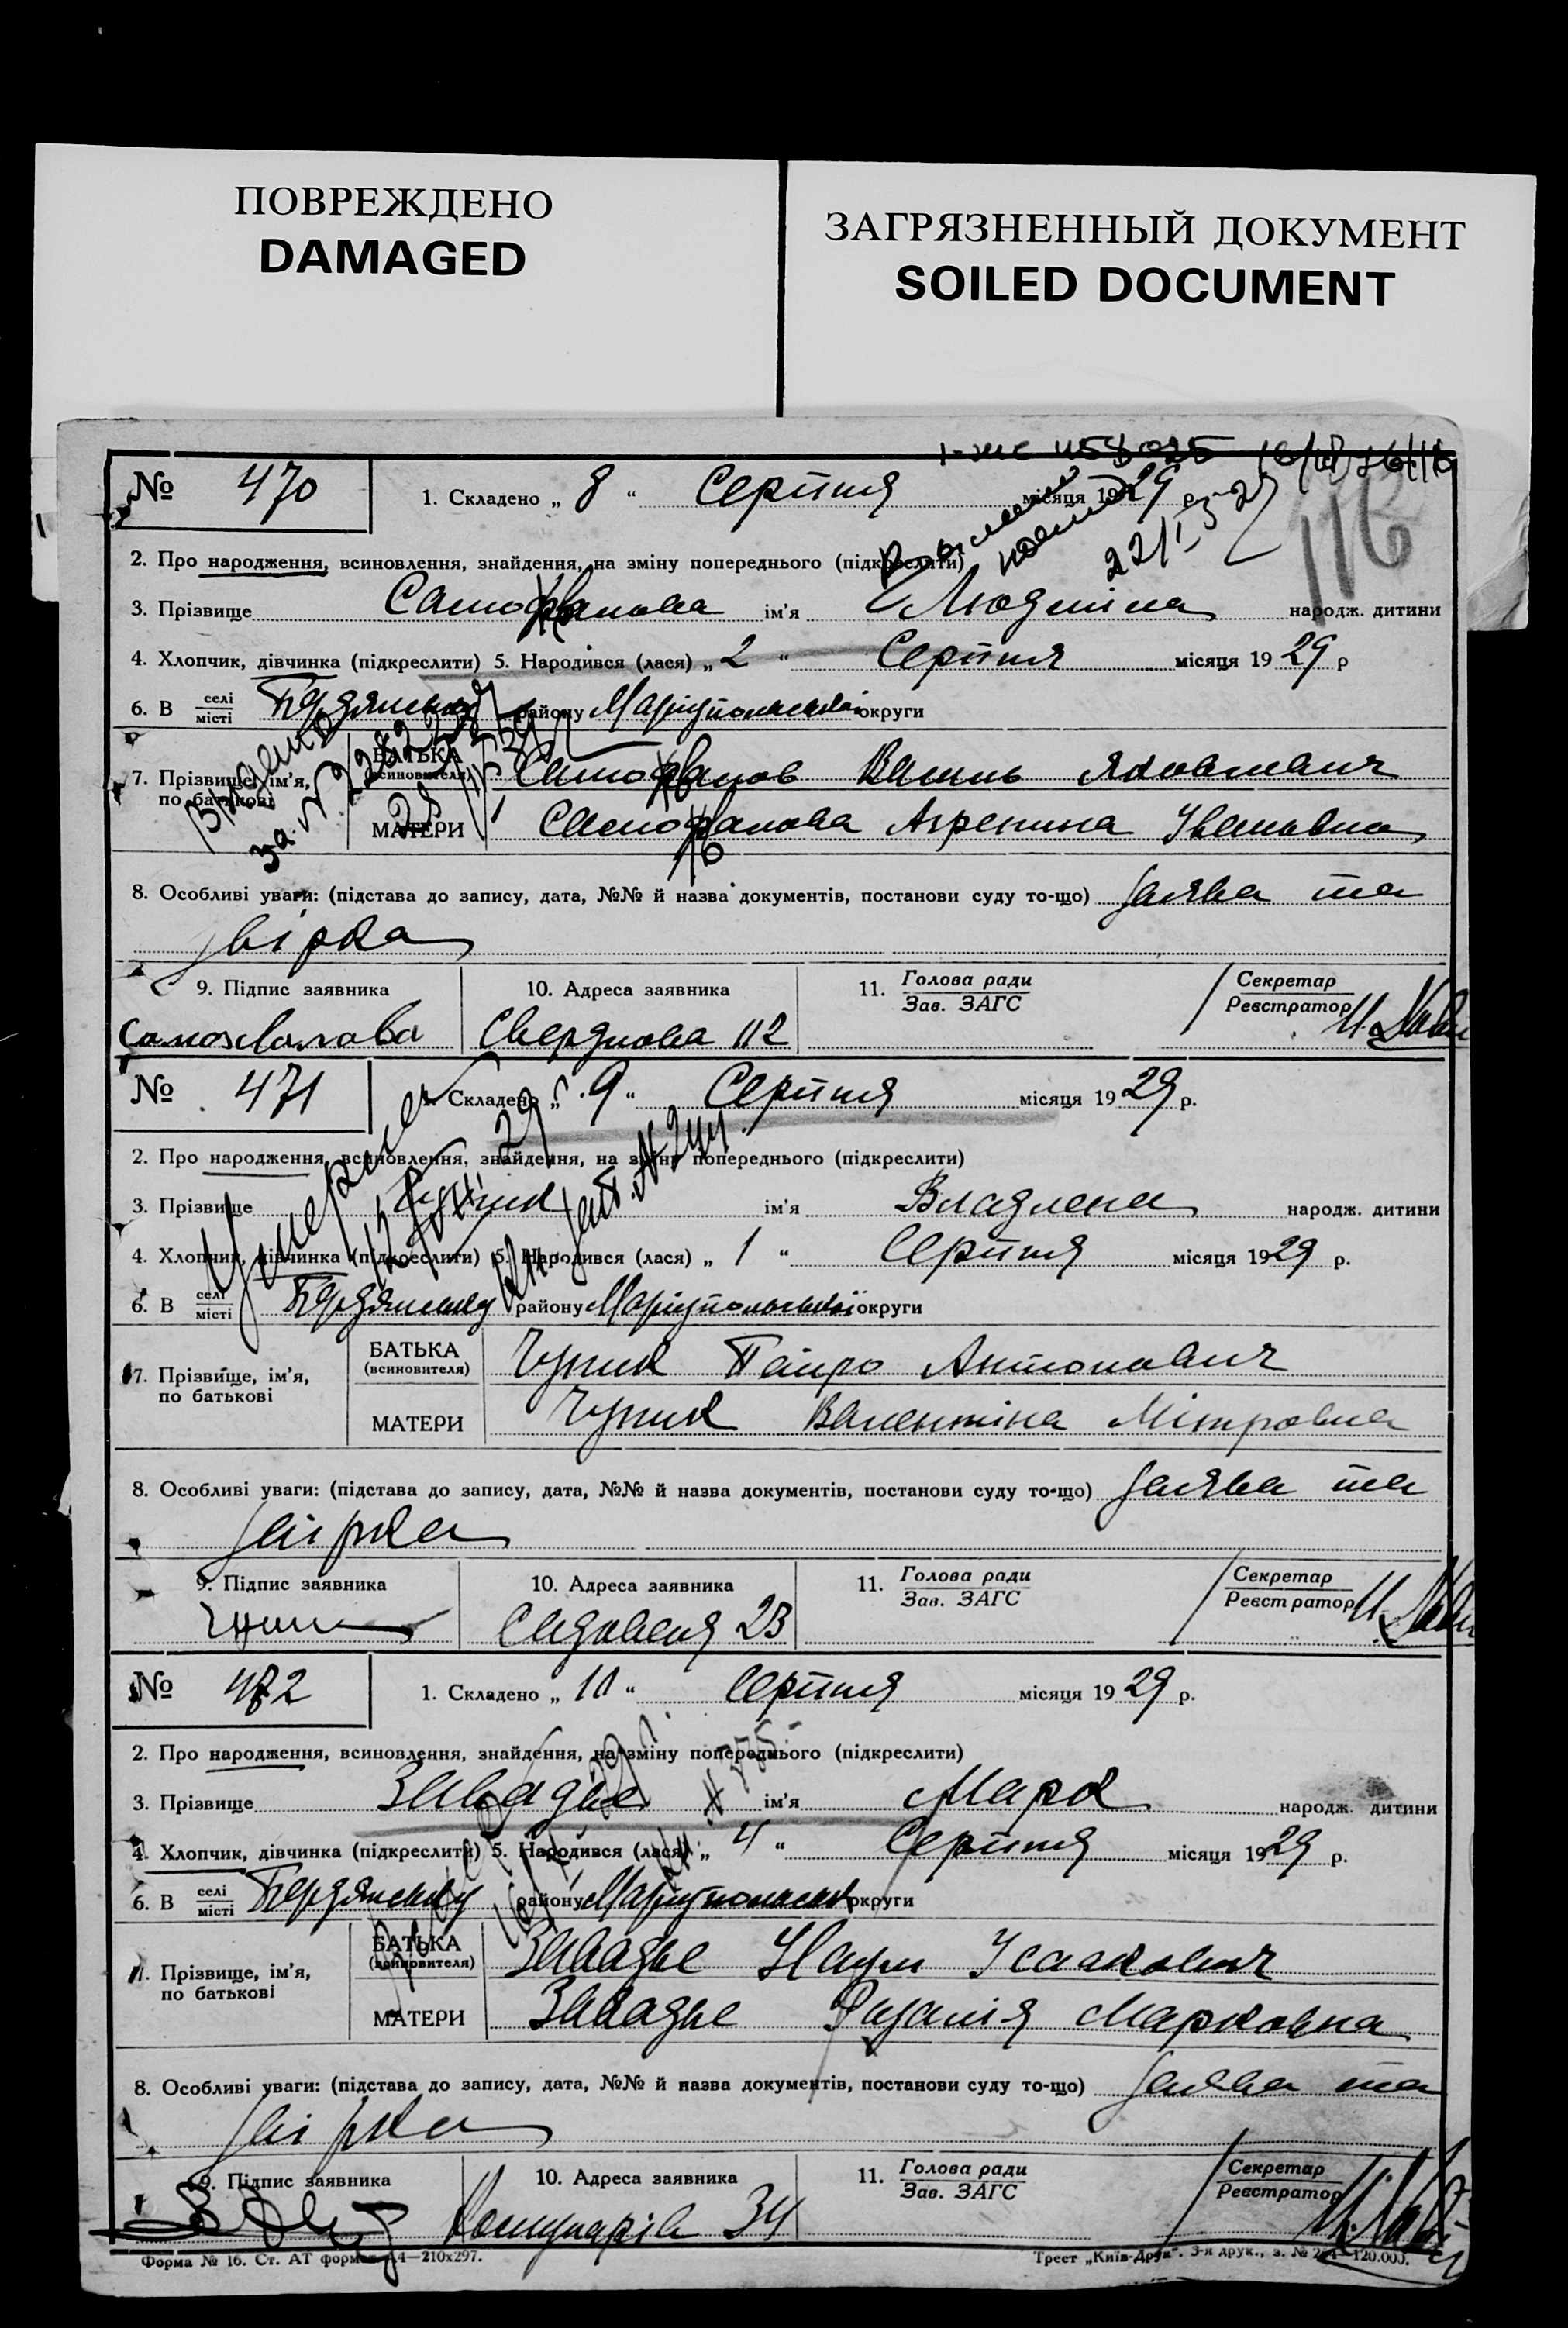 ПОВРЕЖДЕНО
DAMAGED
ЗАГРЯЗНЕННЫЙ ДОКУМЕНТ
SOILED DOCUMENT
116
№ 470
1. Складено „ 8 “ Серпня місяця 1929 р.
2. Про народження, всиновлення, знайдення, на зміну попереднього (підкреслити)
3. Прізвище ім'я Людміла народж. дитини
4. Хлопчик, дівчинка (підкреслити) 5. Народився (лася) „ 2 “ Серпня місяця 1929 р
6. В селі місті Бердянську району Маріупольської округи
7. Прізвище, ім'я, по батькові
БАТЬКА (всиновителя) Василь Яковлевич
МАТЕРИ Агрепина Івановна
8. Особливі уваги: (підстава до запису, дата, №№ й назва документів, постанови суду то-що) Заява та
звірка
9. Підпис заявника
10. Адреса заявника
11. Голова ради Зав. ЗАГС
Секретар Реєстратор
Самохвалова Свердлова 112
№ 471
1. Складено „ 9 “ Серпня місяця 1929 р.
2. Про народження, всиновлення, знайдення, на зміну попереднього (підкреслити)
3. Прізвище Чупик ім'я Владлена народж. дитини
4. Хлопчик, дівчинка (підкреслити) 5. Народився (лася) „ 1 “ Серпня місяця 1929 р.
6. В селі місті Бердянську району Маріупольської округи
7. Прізвище, ім'я, по батькові
БАТЬКА (всиновителя) Чупик Антонович
МАТЕРИ Чупик Валентіна Мітровна
8. Особливі уваги: (підстава до запису, дата, №№ й назва документів, постанови суду то-що) Заява та
звірка
9. Підпис заявника
10. Адреса заявника
11. Голова ради Зав. ЗАГС
Секретар Реєстратор
23
№ 472
1. Складено „ 10 “ Серпня місяця 1929 р.
2. Про народження, всиновлення, знайдення, на зміну попереднього (підкреслити)
3. Прізвище ім'я Марк народж. дитини
4. Хлопчик, дівчинка (підкреслити) 5. Народився (лася) „ 4 “ Серпня місяця 1929 р.
6. В селі місті Бердянську району Маріупольськ округи
Прізвище, ім'я, по батькові
БАТЬКА (всиновителя) Завадье Наум Ісаакович
МАТЕРИ Завадье Розалія Марковна
8. Особливі уваги: (підстава до запису, дата, №№ й назва документів, постанови суду то-що) Заява та
звірка
9. Підпис заявника
10. Адреса заявника
11. Голова ради Зав. ЗАГС
Секретар Реєстратор
Комунарів 34
Форма № 16. Ст. АТ формат А4—210x297.
Трест „Київ-Друк“. 3-я друк., з. № 120.000.